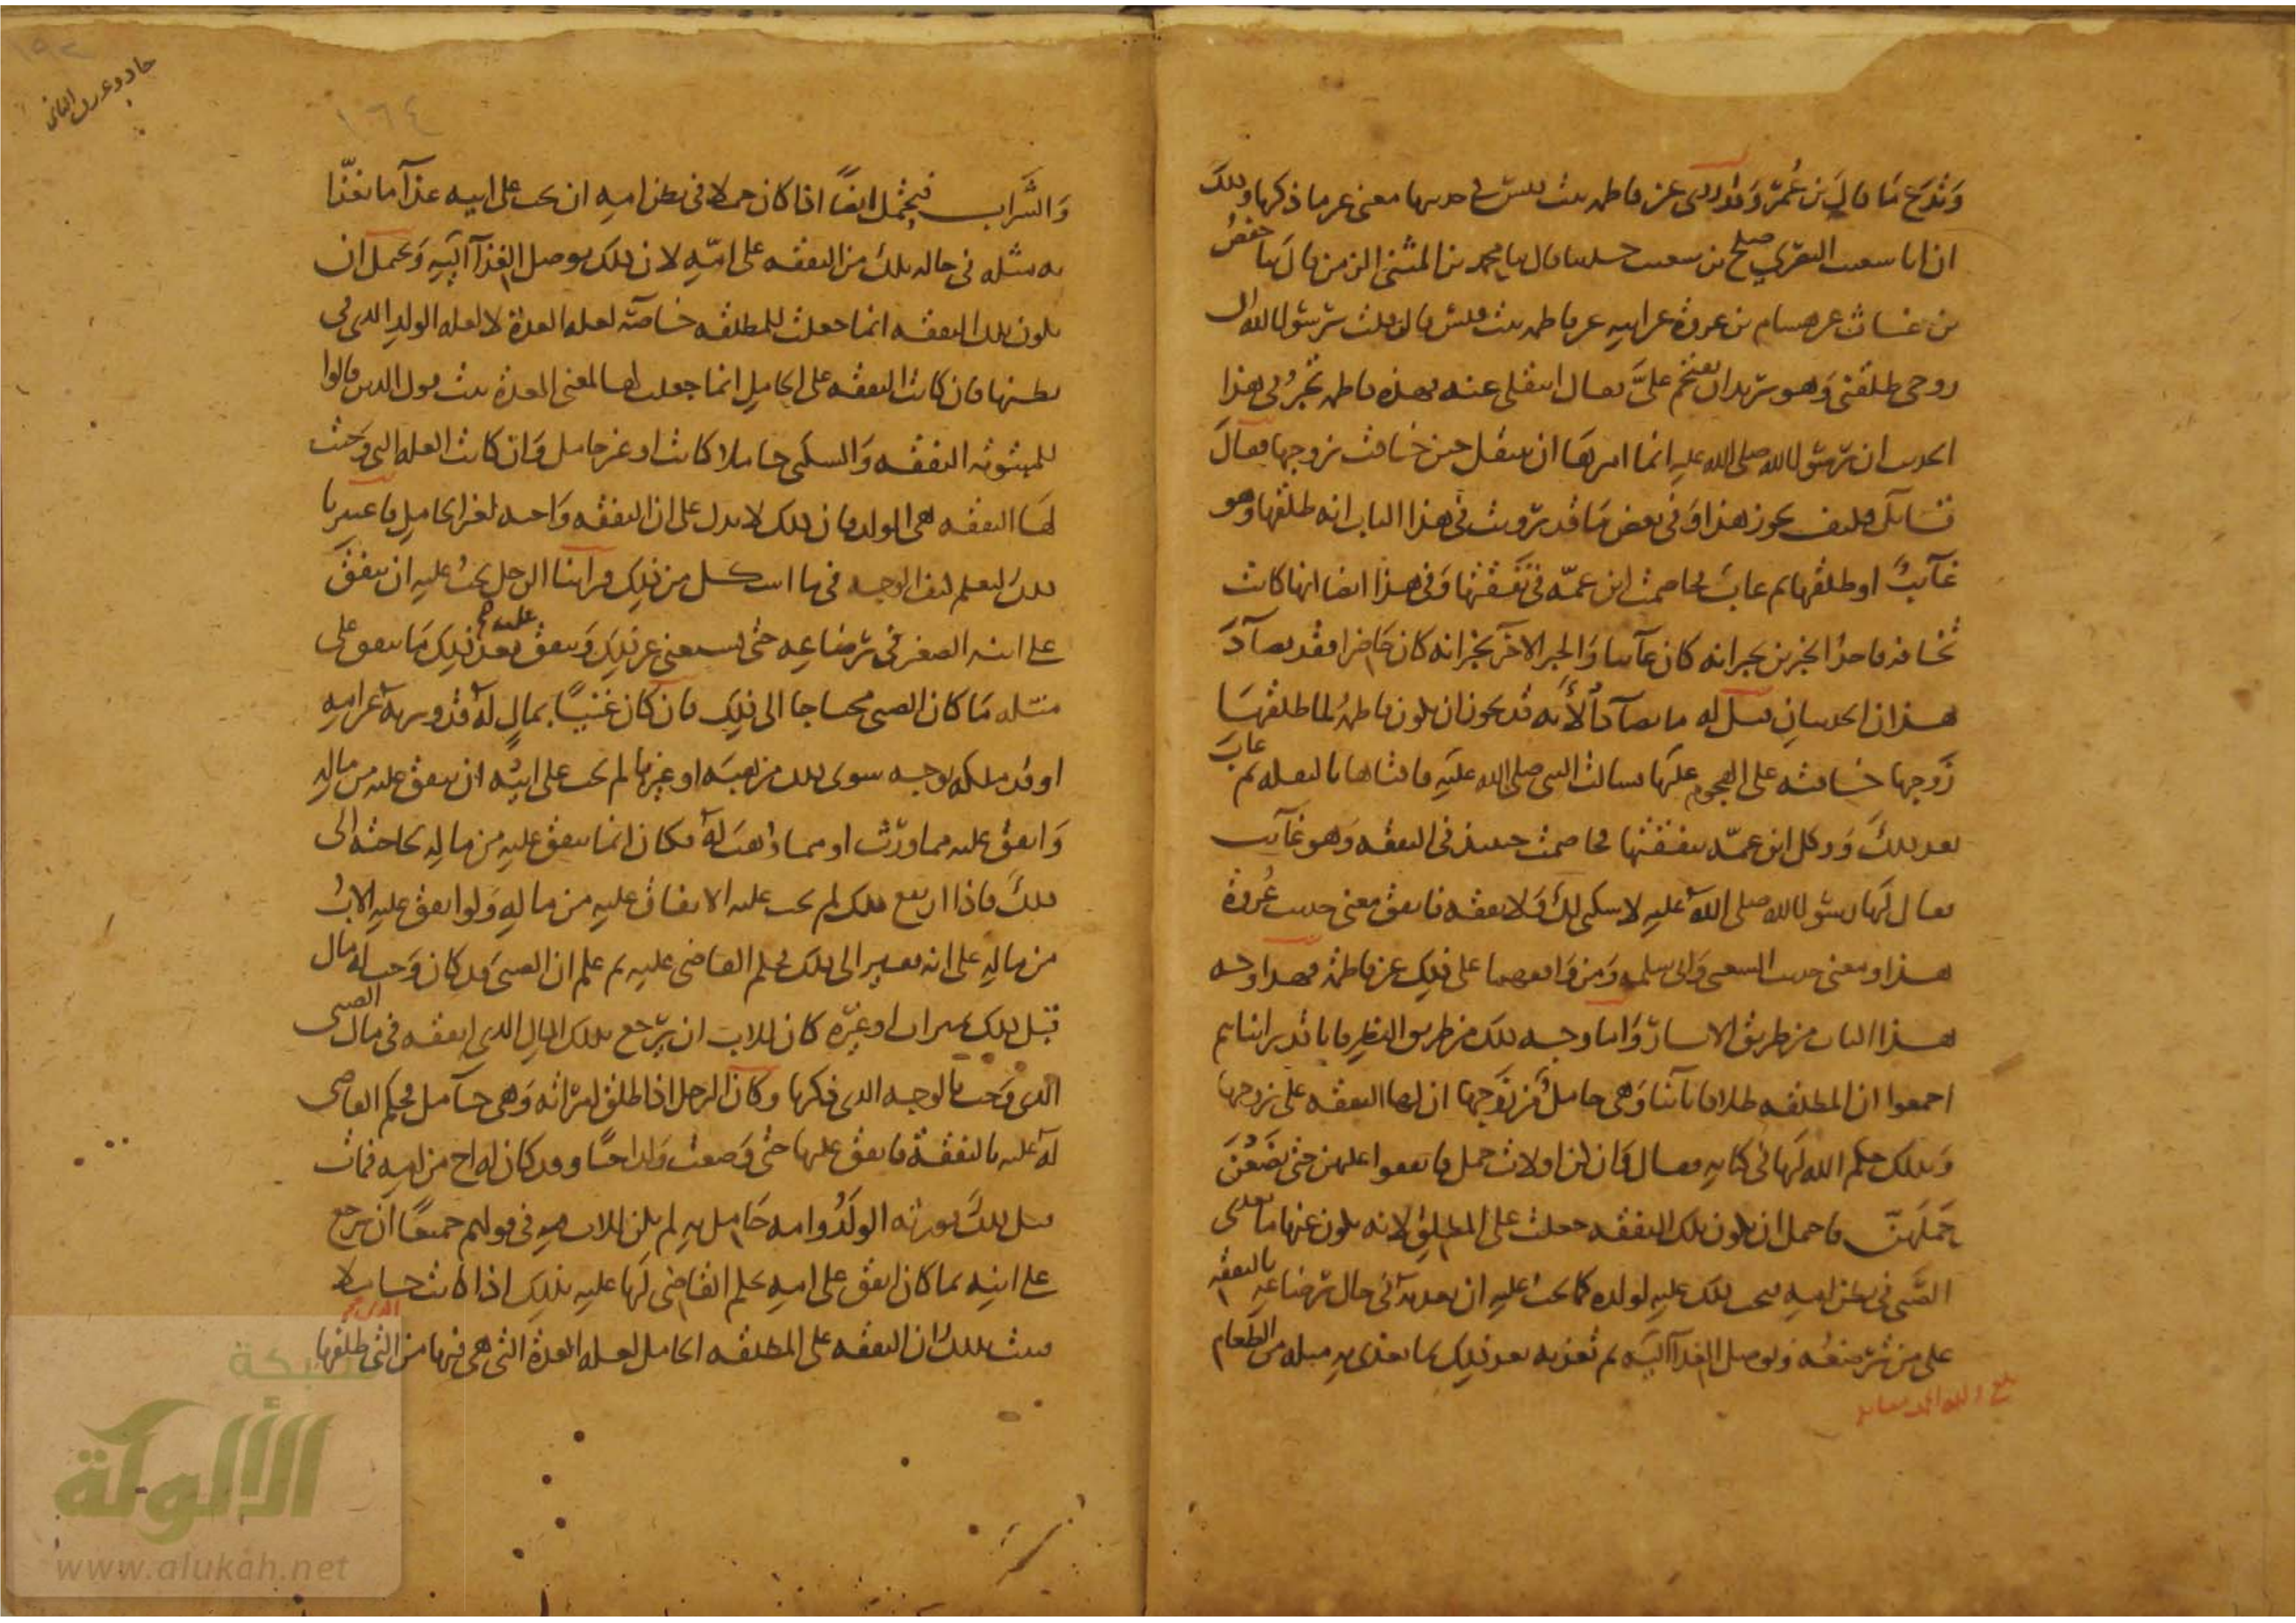 وَنَدَعَ مَا قال بن عُمَرَ وَقد روى عن فاطمه بنت قيس في حديثها معنى غير ما ذكرنا وذلك
ان ابا سعيب البصري صلح بن سعيب حدثنا قال ثنا محمد بن المثنى الزمن قال ثنا حفصُ
بن غياث عن هشام بن عروة عن ابيه عن فاطمه بنت قيس قالت قلت يرسول الله ان
زوجى طلقنى وَهو يريد ان يقتحم علىَّ فقال انتقلى عنه فهذه فاطمه تخبرُ في هذا
الحديث ان رسول الله صلى الله عليه انما امرها ان تنتقل حين خافت زوجها فقال
قائل وكيف يجوز هذا وَفي بعض مَا قد رويت في هذا الباب انه طلقها وهو
غآئبٌ او طلقها ثم غاب فخاصمت ابن عمّه في نَفَقَتها وَفي هذا ايضا انها كانت
تخافه فاحدُ الخبرين يخبر انه كان غآئبا وَالخبر الاخر يخبر انه كان حَاضرا فقد تضآدَّ
هذان الحديثانِ قيل له ما تضآدَّا لأنّه قد يجوز ان يكون فاطمهُ لما طلقهَا
زَوجها خافته على الهجوم عليها فسالت النبي صلى الله عليه فافتاها بالنقله ثم غابَ
بعد ذلكَ وَوكل ابن عمّه بنفقتها فخاصمت حينئذ في النفقه وَهو غآئب
فقال لَها رسول الله صلى اللّه عليه لا سكنى لكِ وَلا نفقه فاتفق معنى حديث عُروة
هذا ومعنى حديث الشعبى وَابى سلمه وَمن وَافقهما على ذلك عن فاطمه فهذا وجه
هذا الباب من طريق الاثار وَاما وجه ذلك من طريق النظرِ فانا قد راينا هم
اجمعوا ان المطلقه طلاقا بآئنا وَهي حاملٌ من زَوجها ان لها النفقه على زوجها
وَبذلك حكم الله لَها في كتابه فقال وَان كن اولات حمل فانفقوا عليهن حتى يَضَعْنَ
حَملَهنَّ فاحتمل ان يكون تلك النفقه جعلت على المطلقِ لانه يكون عنها ما يغذى
الصَّبى في بطن امهِ فيجب ذلك عليه لولده كما يجبُ عليهِ ان يغذيَه في حال رضاعهِ بالنفقه
على من ترضعُه وَتوصل الغذآ اليَه ثم تغذيه بعد ذلِك بما يغذى به مثله من الطعام
بلغ ولله الحمد مقابله
١٦٤
وَالشَّراب فيحتمل ايضًا اذا كان حملا في بطن امهِ ان يجب على ابيه غذآ ما يغذّا
به مثله في حاله تلك من النفقه على امّهِ لان ذلك يوصل الغذآ اليَه وَيحتمل ان
يكون تلك النفقه انما جعلت للمطلقه خاصّة لعله العدة لا لعله الولدِ الذى في
بطنها فان كانت النفقه على الحاملِ انما جعلت لها لمعنى العدة ثبت قول الذين قالوا
للمبتوته النفقه وَالسكنى حاملا كانت او غير حامل وَان كانت العله التى وَجبت
لهَا النفقه هى الولد فان ذلك لا يدل على ان النفقه وَاجبه لغير الحامل فاعتبرنا
ذلكَ لنعلم كيفَ الوجه في ما اشكل من ذلِك فراينا الرجل يجبُ عليه ان ينفقَ
على ابنه الصغير في رضاعهِ حتى يستغنى عن ذلِك وَينفق عليه بعدَ ذلِك مَا ينفق على
مثله مَا كان الصبى محتاجا الى ذلِك فان كان غنيًّا بمالٍ لهُ قد ورثهُ عن امهِ
او قد ملكه بوجه سوى ذلك من هبَه او غيرها لم يجب على ابيه ان ينفق عليه من مالِهِ
وَانفق عليه مما ورَّث او مما وُهبَ لهُ فكان انما ينفق عليهِ من مالهِ لحاجته الى
ذلك فاذا ارتفع ذلك لم يجب عليه الانفاق عليهِ من مالهِ وَلو انفق عليهِ الابُ
من مالِهِ على انه فقير الى ذلك بحكم القاضى عليه ثم علم ان الصبىَ قد كان وَجب له مال
قبل ذلك بميراث او غيره كان للاب ان يَرجع بذلك المالِ الذى انفقه في مال الصبى
الذى وَجب بالوجه الذى ذكرنا وكان الرجل اذا طلق امراته وَهى حآمل فحكم القاضى
لها عليه بالنفقة فانفق عليها حتى وَضعت وَلدا حيًّا وقد كان له اخ من امه فمات
قبل ذلكَ فورثه الولَدُ وامه حَامل به لم يكن للاب فى قولهم جميعًا ان يرجع
على ابنِه بما كان انفق على امهِ بحكم القاضى لَها عليه بذلِك اذا كانت حاملا
فثبت بذلكَ ان النفقه على المطلقه الحامل لعله العدة التى هى فيها من الذي طلقها
شبكة
الألوكة
www.alukah.net